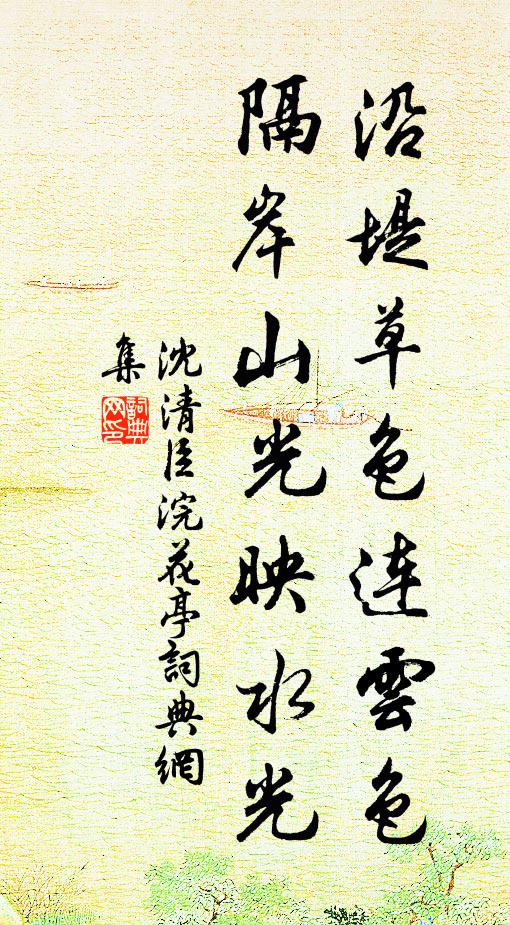 沿堤草色連雲色
隔岸山光映水光
沈清臣浣花亭詞典網
集
詞典
网印